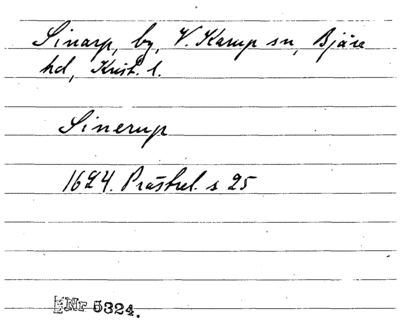 Sinarp, by, V. Karup sn, Bjäre
hd, Krist. l.
Sinerup
1624. Prästrel. s 25
Nr 5324.